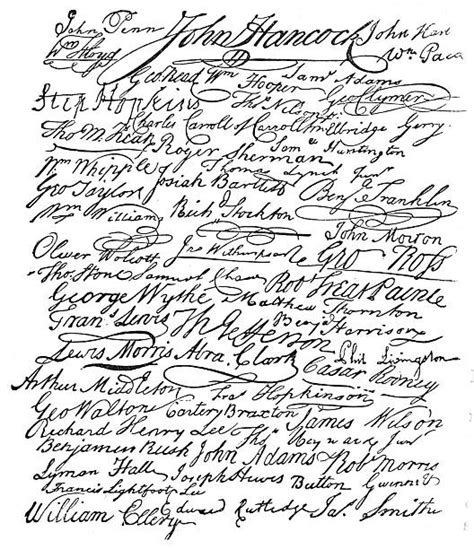 John Penn John Hancock John Hart
Wm Floyd Wm Paca
Geo Read Wm Hooper Saml Adams
Step Hopkins Thos Nelson jr Geo Clymer
Charles Carroll of Carrollton Elbridge Gerry
Tho M Kean Roger Sherman Saml Huntington
Wm Whipple Thomas Lynch Junr
Geo Taylor Josiah Bartlett Benj Franklin
Wm Williams Rich Stockton
John Morton
Oliver Wolcott Jno Witherspoon Geo Ross
Thos Stone Samuel Chase Robt Treat Paine
George Wythe Matthew Thornton
Frans Lewis Th Jefferson Benj Harrison
Lewis Morris Abra Clark Phil Livingston
Cæsar Rodney
Arthur Middleton Fras Hopkinson
Geo Walton Carter Braxton James Wilson
Richard Henry Lee Thos Heyward Junr
Benjamin Rush John Adams Robt Morris
Lyman Hall Joseph Hewes Button Gwinnett
Francis Lightfoot Lee
William Ellery Edward Rutledge Jas Smith